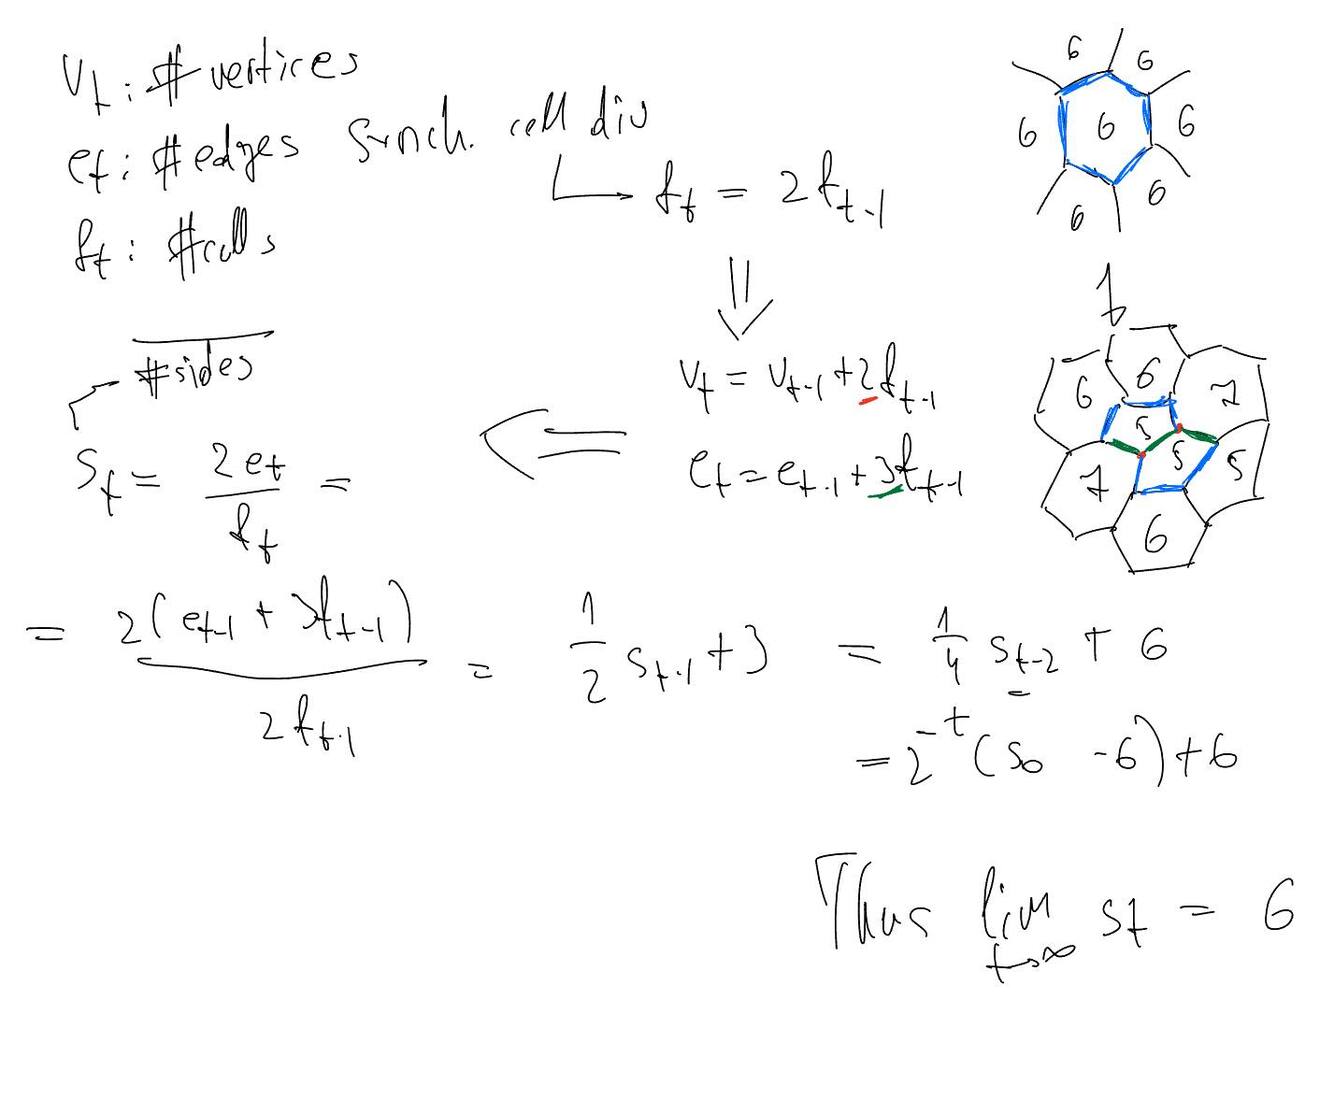 v_t : # vertices
e_t : # edges
f_t : # cells
Synch. cell div
f_t = 2f_{t-1}
v_t = v_{t-1} + 2f_{t-1}
e_t = e_{t-1} + 3f_{t-1}
# sides
s_t = 2e_t / f_t =
= 2(e_{t-1} + 3f_{t-1}) / 2f_{t-1} = 1/2 s_{t-1} + 3 = 1/4 s_{t-2} + 6
= 2^{-t} (s_0 - 6) + 6
Thus lim t→∞ s_t = 6
6 6
6 6 6
6 6
6 6 7
5
7 5 5
6